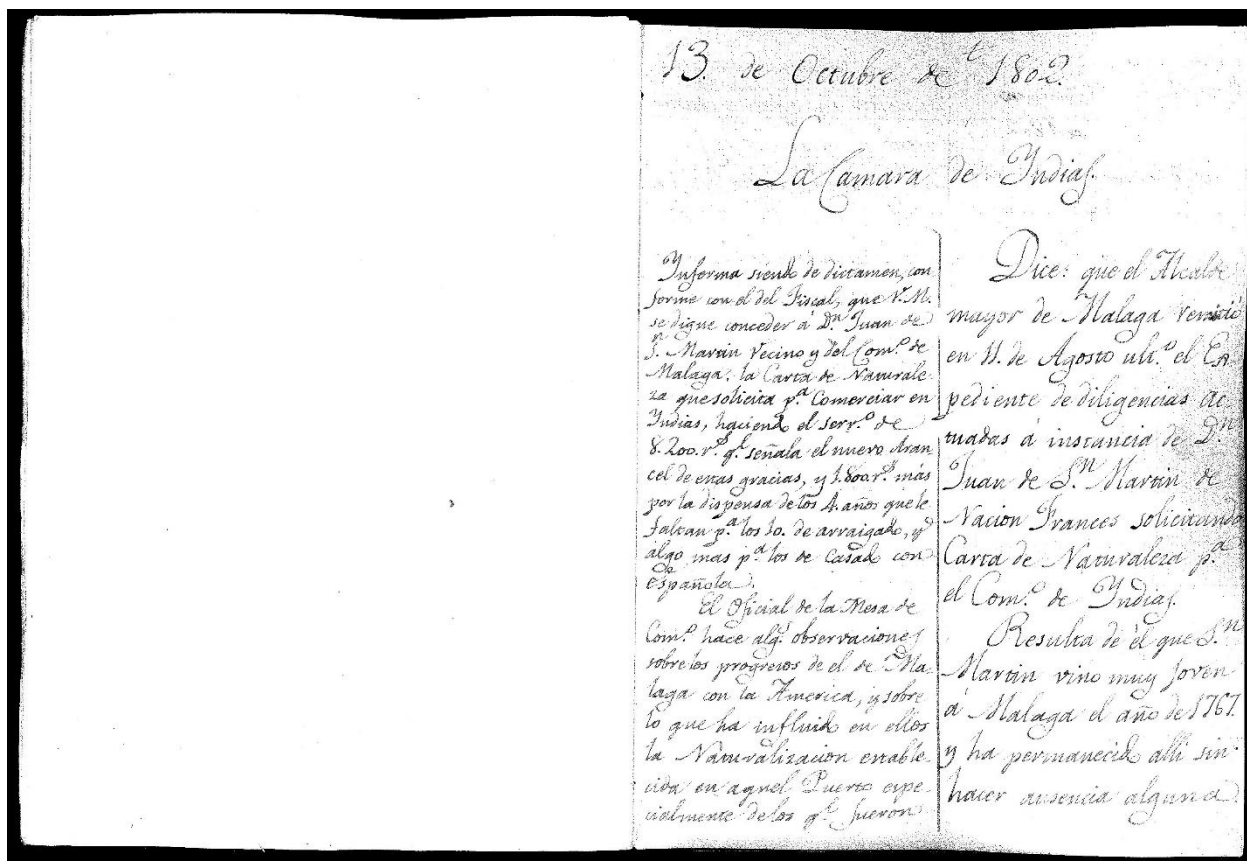 13. de Octubre de 1802.
La Camara de Yndias.
Ynforma siendo de dictamen, con
forme con el del Fiscal, que V. M.
se digne conceder á Dn. Juan de
Sn. Martin Vecino y del Comº. de
Malaga, la Carta de Naturale-
za que solicita pª. Comerciar en
Yndias, haciendo el servº. de
8.200. rs. qe. señala el nuevo Aran
cel de estas gracias, y 1.800 rs. más
por la dispensa de los 4. años que le
faltan pª. los 10. de arraigado, y
algo mas pª. los de Casado con
Española.
El Oficial de la Mesa de
Comº. hace algs. observaciones
sobre los progresos de el de Ma-
laga con la America, y sobre
lo que ha influido en ellos
la Naturalizacion estable-
cida en aquel Puerto espe-
cialmente de los qe. fueron
Dice: que el Alcalde
mayor de Malaga remitió
en 11. de Agosto ultº. el Ex-
pediente de diligencias ac
tuadas á instancia de Dn.
Juan de Sn. Martin de
Nacion Frances solicitando
Carta de Naturaleza pª.
el Comº. de Yndias.
Resulta de él que Sn.
Martin vino muy joven
á Malaga el año de 1767.
y ha permanecido alli sin
hacer ausencia alguna